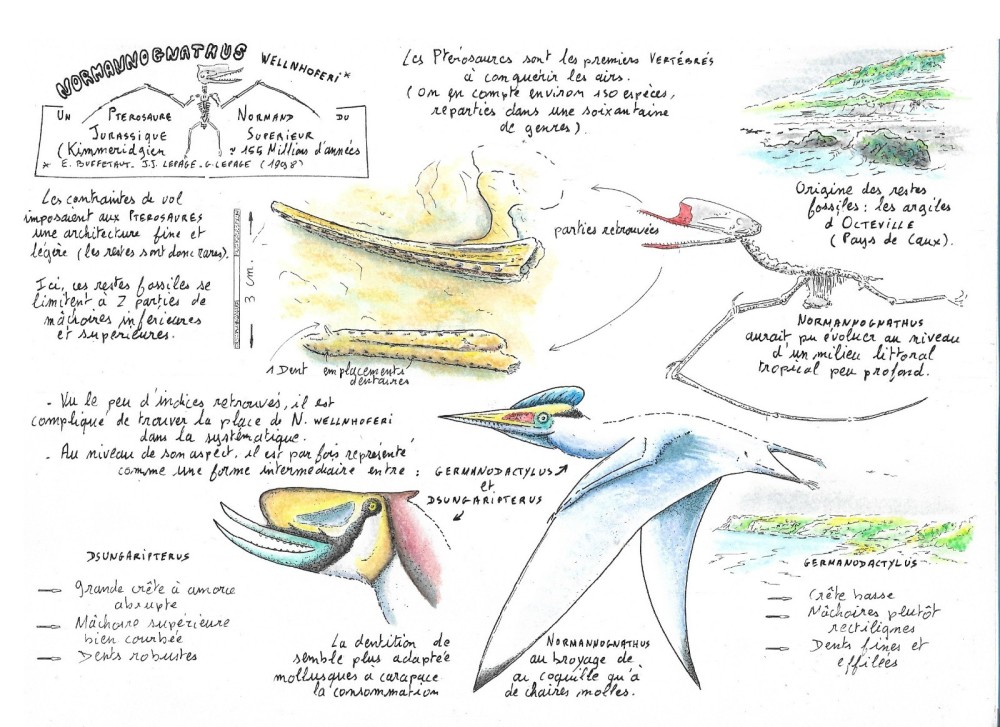 NORMANNOGNATHUS
WELLNHOFERI *
UN PTEROSAURE NORMAND DU
JURASSIQUE SUPERIEUR
(Kimmeridgien ≈ 155 Millions d'années
* E. BUFFETAUT. J.J. LEPAGE. G. LEPAGE (1998)
Les Ptérosaures sont les premiers VERTÉBRÉS
à conquérir les airs.
(On en compte environ 150 espèces,
réparties dans une soixantaine
de genres).
Origine des restes
fossiles : les argiles
d'OCTEVILLE
(Pays de Caux).
Les contraintes de vol
imposaient aux PTEROSAURES
une architecture fine et
légère (les restes sont donc rares)
Ici, ces restes fossiles se
limitent à 2 parties de
mâchoires inférieures
et supérieures.
3 cm.
parties retrouvées
1 Dent
emplacements
dentaires
NORMANNOGNATHUS
aurait pu évoluer au niveau
d'un milieu littoral
tropical peu profond.
- Vu le peu d'indices retrouvés, il est
compliqué de trouver la place de N. WELLNHOFERI
dans la systématique.
- Au niveau de son aspect, il est parfois représenté
comme une forme intermédiaire entre :
GERMANODACTYLUS
et
DSUNGARIPTERUS
DSUNGARIPTERUS
→ Grande crête à amorce
abrupte
→ Mâchoire supérieure
bien courbée
→ Dents robustes
GERMANODACTYLUS
→ Crête basse
→ Mâchoires plutôt
rectilignes
→ Dents fines et
effilées
La dentition de NORMANNOGNATHUS
semble plus adaptée au broyage de
mollusques à carapace ou coquille qu'à
la consommation de chaires molles.